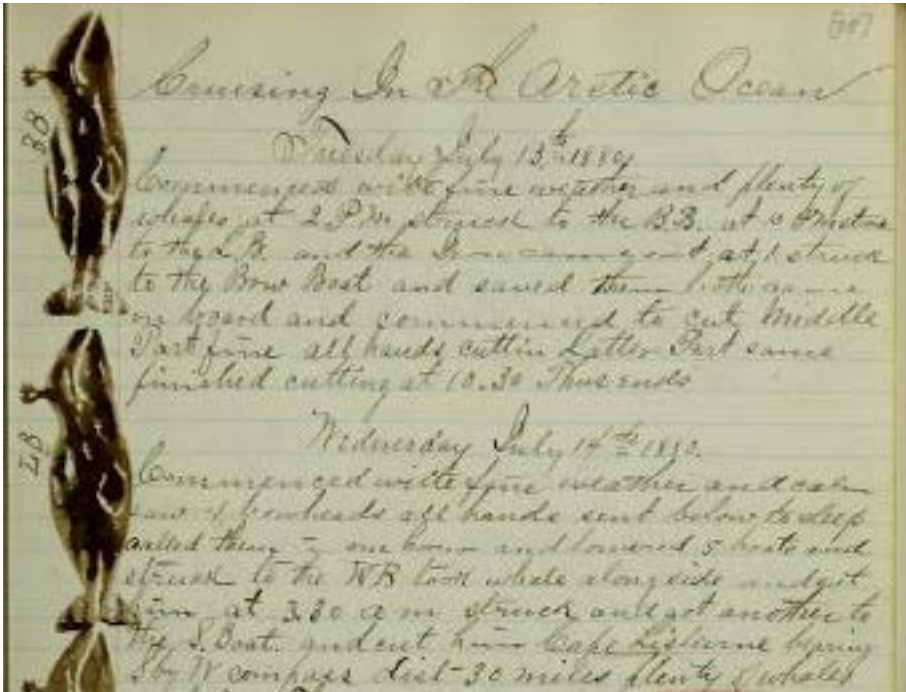 Cruising In The Arctic Ocean
Tuesday July 13th 1880
Commenced with fine weather and plenty of
whales at 2 P.M. struck to the B.B. at
to the L.B. and the Iron came out at 1 struck
to the Bow Boat and saved them both came
on board and commenced to cut Middle
Part fine all hands cuttin Latter Part same
finished cutting at 10.30 Thus ends
Wednesday July 14th 1880.
Commenced with fine weather and calm
saw bowheads all hands sent below to sleep
called them one hour and lowered 5 boats and
struck to the WB took whale alongside and got
him at 3.30 a m struck and got another to
the S. Boat. and cut him Cape Lisburne bearing
S by W compass dist 30 miles plenty of whales
88
87